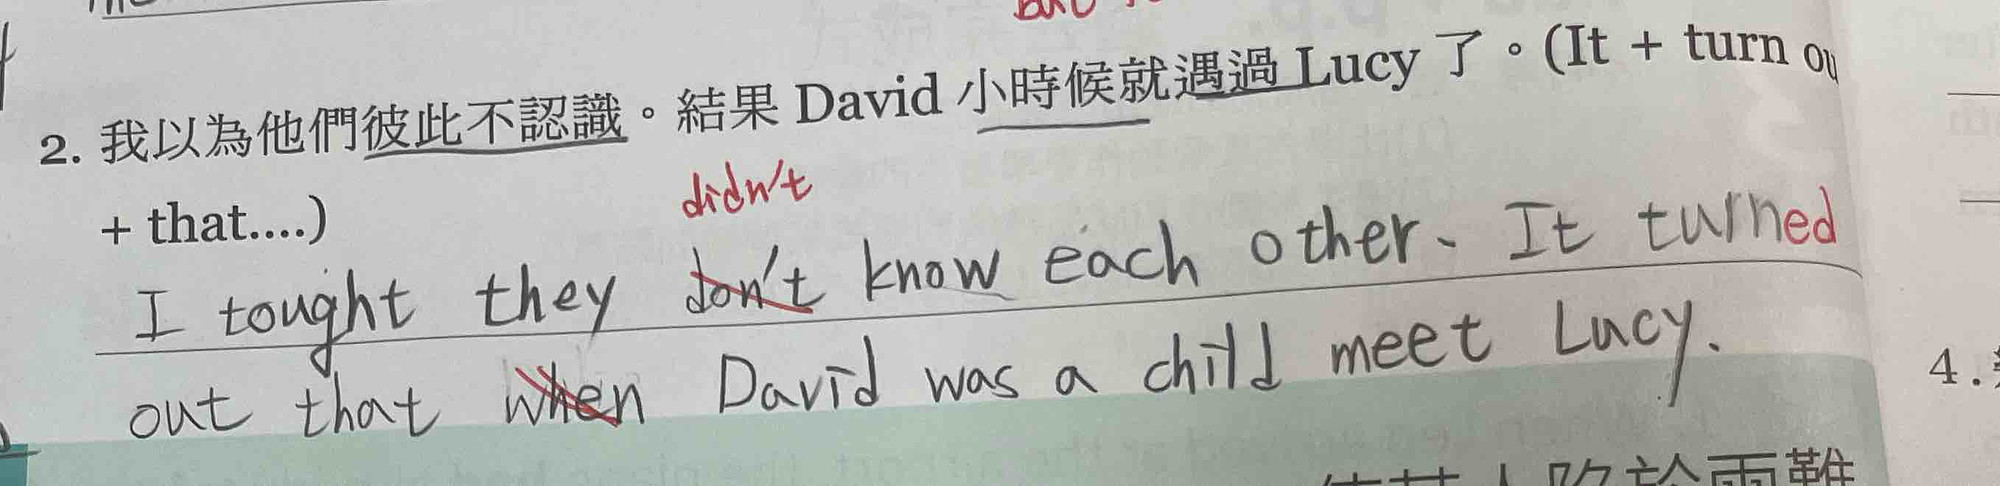 2. 我以為他們彼此不認識。結果 David 小時候就遇過 Lucy 了。(It + turn ou
+ that....)
didn't
I tought they don't know each other. It turned
out that when David was a child meet Lucy.
4.